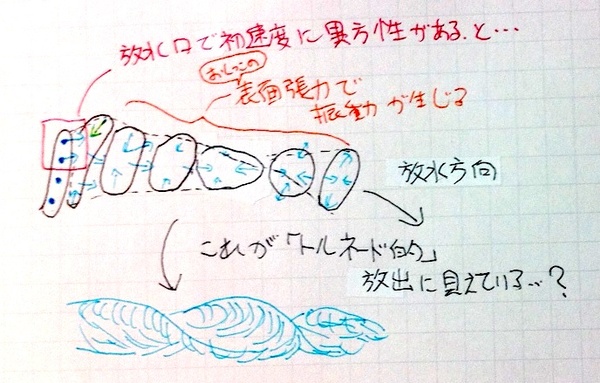 放水口で初速度に異方性がある、と…
おしっこの
表面張力で
振動が生じる
放水方向
これが「トルネード的」
放出に見えている…?